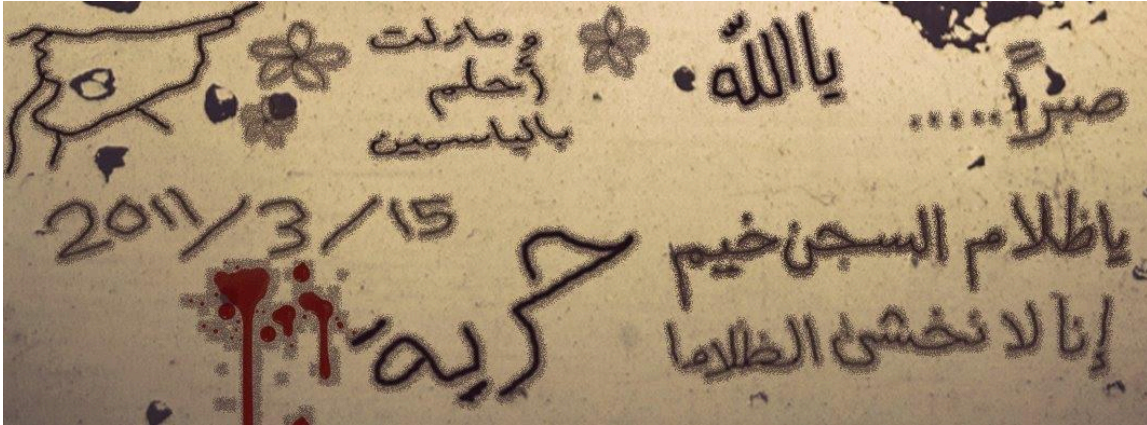 صبراً.....
ياالله
ومازلت
أحلم
بالياسمين
ياظلام السجن خيم
إننا لا نخشى الظلاما
2011/3/15
حريه